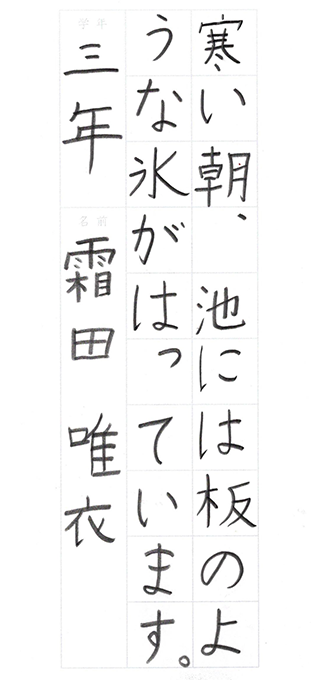 寒い朝、池には板のよ
うな氷がはっています。
学年
三年
名前
霜田 唯衣